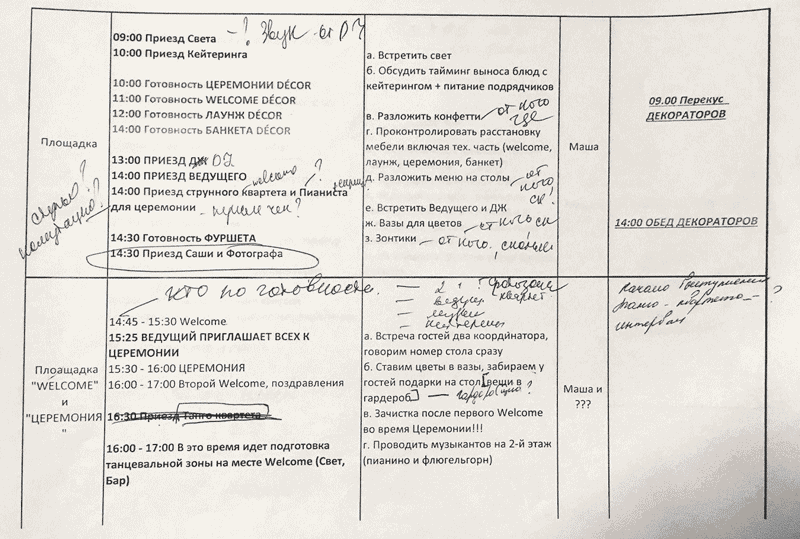 09:00 Приезд Света
- ? Звук от DJ
10:00 Приезд Кейтеринга
10:00 Готовность ЦЕРЕМОНИИ DÉCOR
11:00 Готовность WELCOME DÉCOR
12:00 Готовность ЛАУНЖ DÉCOR
14:00 Готовность БАНКЕТА DÉCOR
Площадка
13:00 ПРИЕЗД ДЖ DJ
14:00 ПРИЕЗД ВЕДУЩЕГО
welcome ?
14:00 Приезд струнного квартета и Пианиста
для церемонии
?
14:30 Готовность ФУРШЕТА
14:30 Приезд Саши и Фотографа
а. Встретить свет
б. Обсудить тайминг выноса блюд с
кейтерингом + питание подрядчиков
в. Разложить конфетти
от кого
где
г. Проконтролировать расстановку
мебели включая тех. часть (welcome,
лаунж, церемония, банкет)
д. Разложить меню на столы
от
кого
ск!
е. Встретить Ведущего и ДЖ
ж. Вазы для цветов - от кого ск
з. Зонтики - от кого, сколько
Маша
09.00 Перекус
ДЕКОРАТОРОВ
14:00 ОБЕД ДЕКОРАТОРОВ
Площадка
"WELCOME"
и
"ЦЕРЕМОНИЯ
"
кто по готовности.
14:45 - 15:30 Welcome
15:25 ВЕДУЩИЙ ПРИГЛАШАЕТ ВСЕХ К
ЦЕРЕМОНИИ
15:30 - 16:00 ЦЕРЕМОНИЯ
16:00 - 17:00 Второй Welcome, поздравления
16:30 Приезд Танго квартета
16:00 - 17:00 В это время идет подготовка
танцевальной зоны на месте Welcome (Свет,
Бар)
фотозона
ведущий
квартет
а. Встреча гостей два координатора,
говорим номер стола сразу
б. Ставим цветы в вазы, забираем у
гостей подарки на стол[вещи в
гардероб] - гардеробщик?
в. Зачистка после первого Welcome
во время Церемонии!!!
г. Проводить музыкантов на 2-й этаж
(пианино и флюгельгорн)
Маша и
???
начало выступления
?
интервал